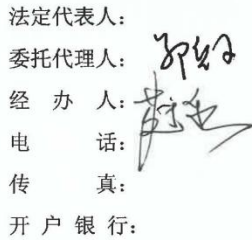 法定代表人：
委托代理人：
经办人：
电话：
传真：
开户银行：